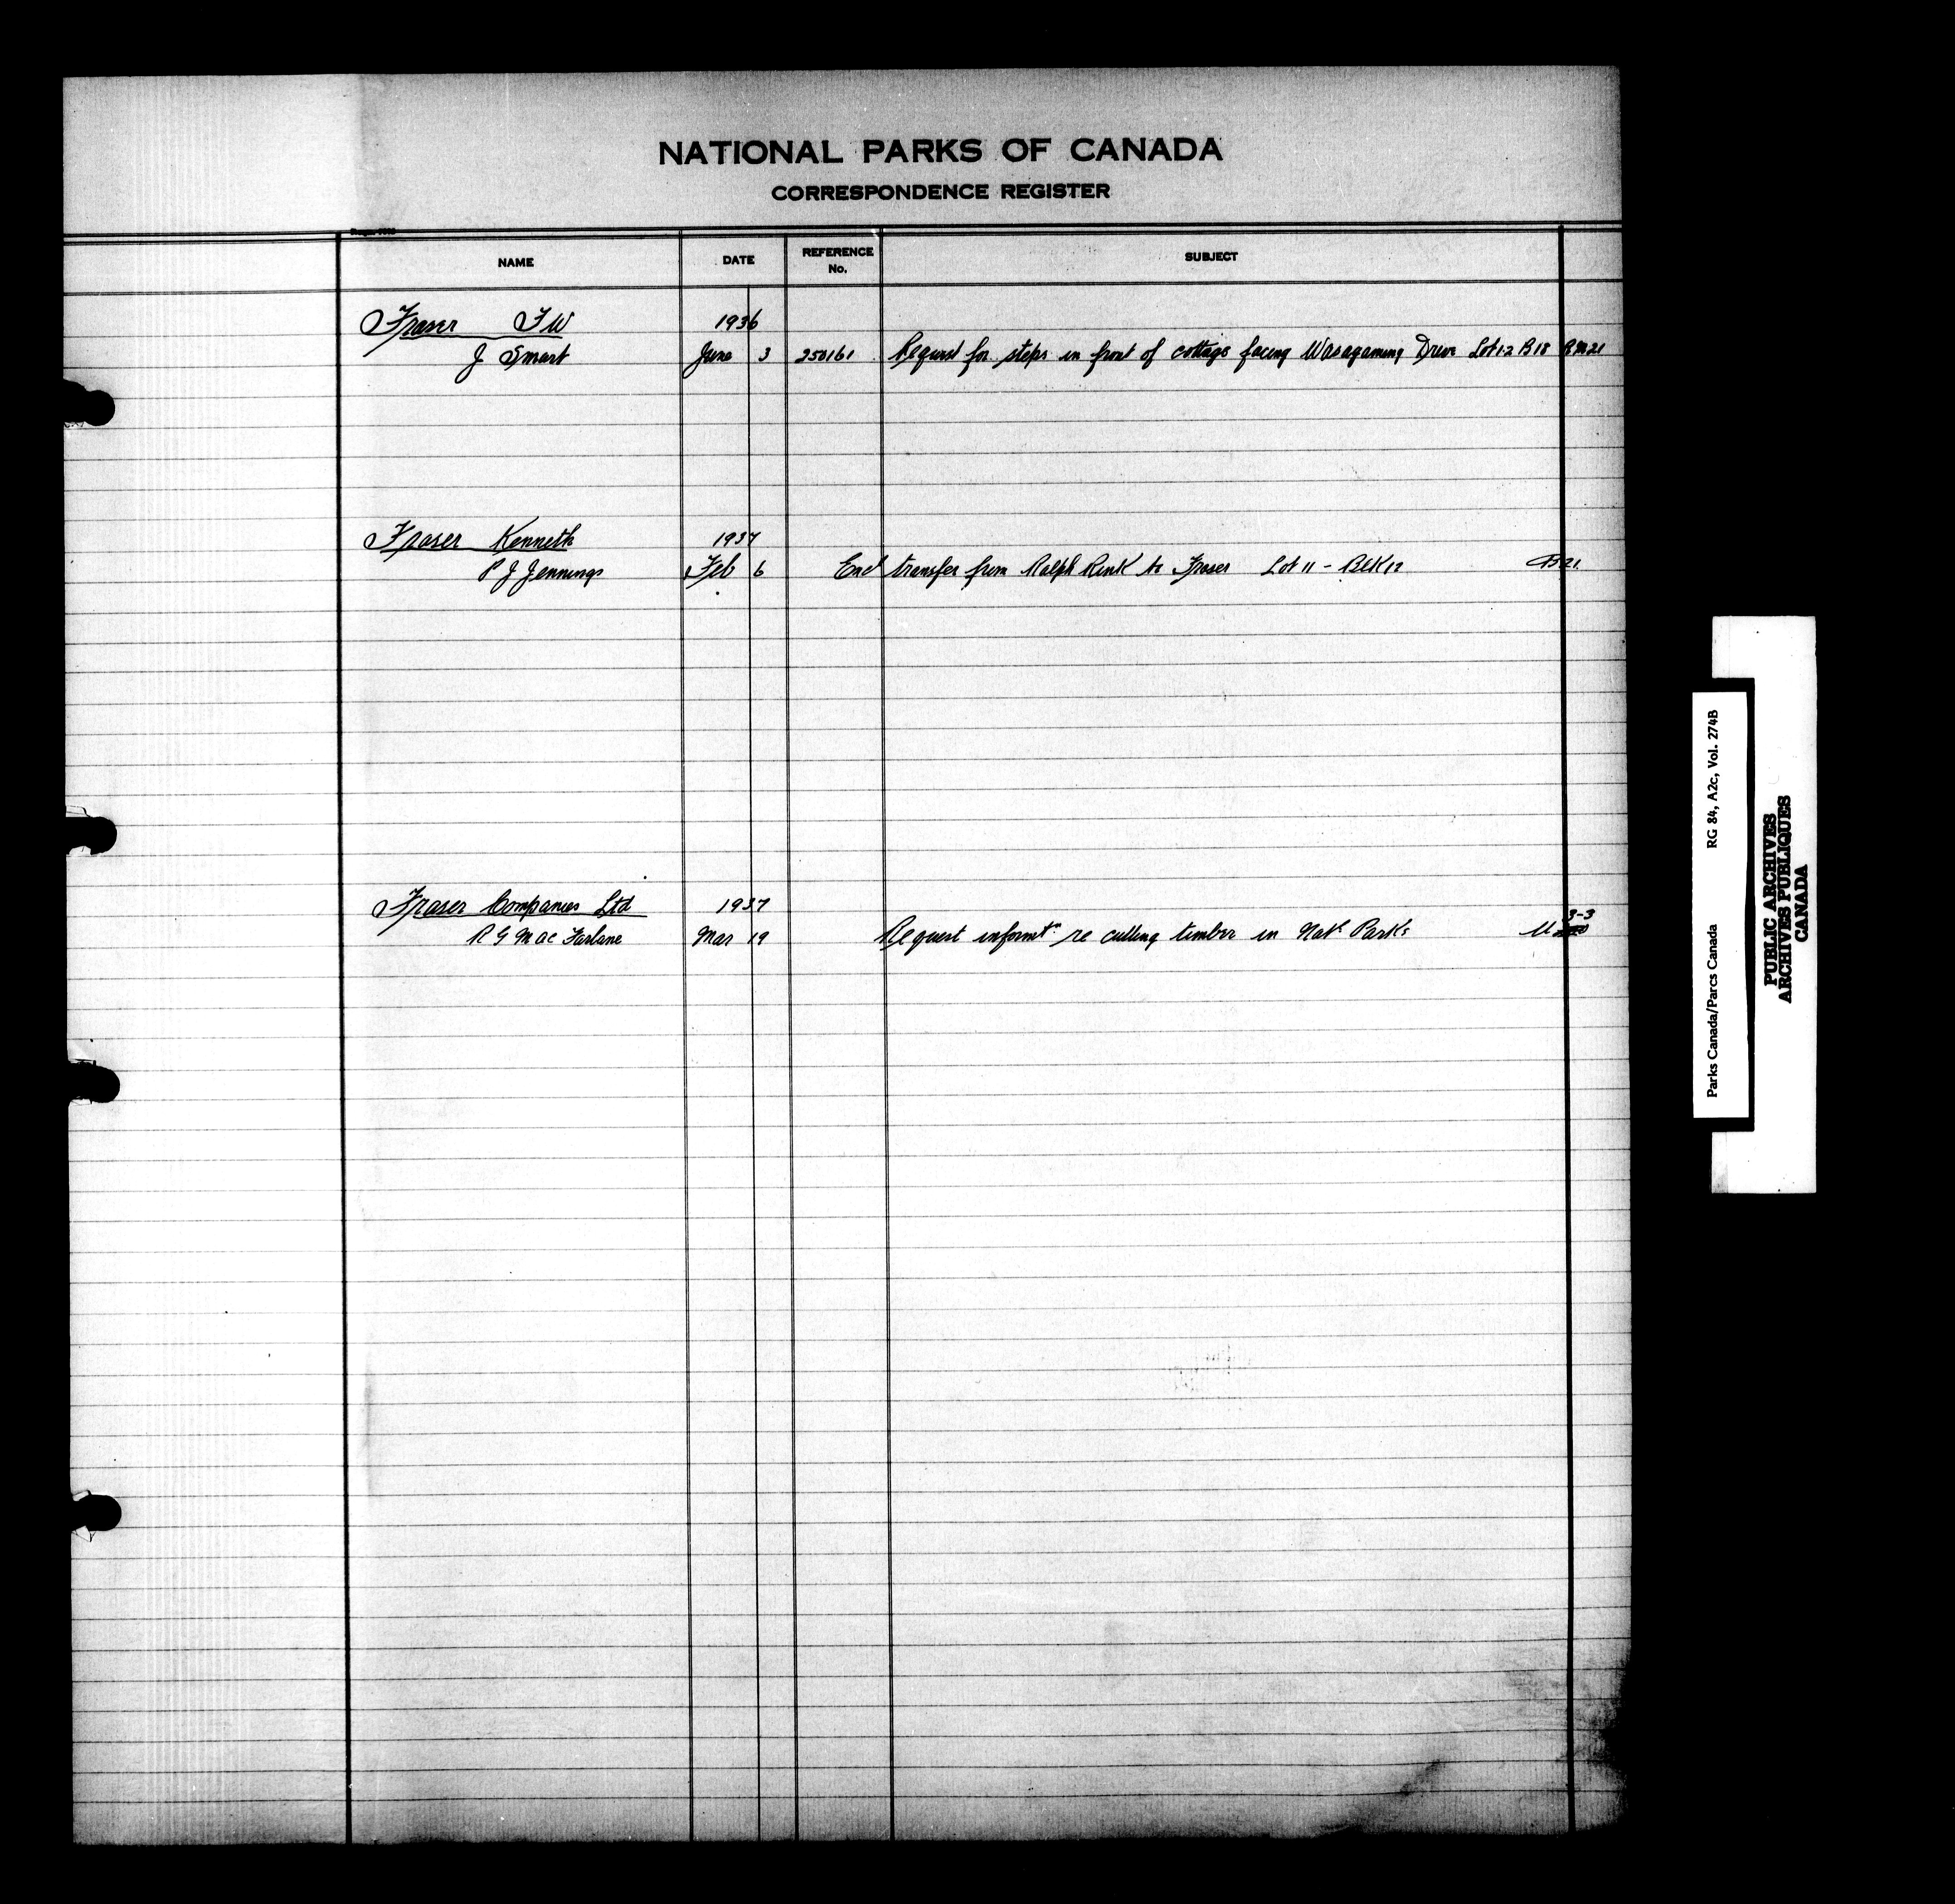 NATIONAL PARKS OF CANADA
CORRESPONDENCE REGISTER
NAME DATE REFERENCE No. SUBJECT
Fraser F W 1936
J Smart June 3 250161 Request for steps in front of cottage facing Wasagaming Drive Lot 12 B 18 RM21
Fraser Kenneth 1937
P J Jennings Feb 6 Encl transfer from Ralph Rink to Fraser Lot 11 - Blk 12 B21
Fraser Companies Ltd 1937
R G MacFarlane Mar 19 Request informtn re culling timber in Natl Parks U 3-3
Parks Canada/Parcs Canada RG 84, A2c, Vol. 274B
PUBLIC ARCHIVES
ARCHIVES PUBLIQUES
CANADA